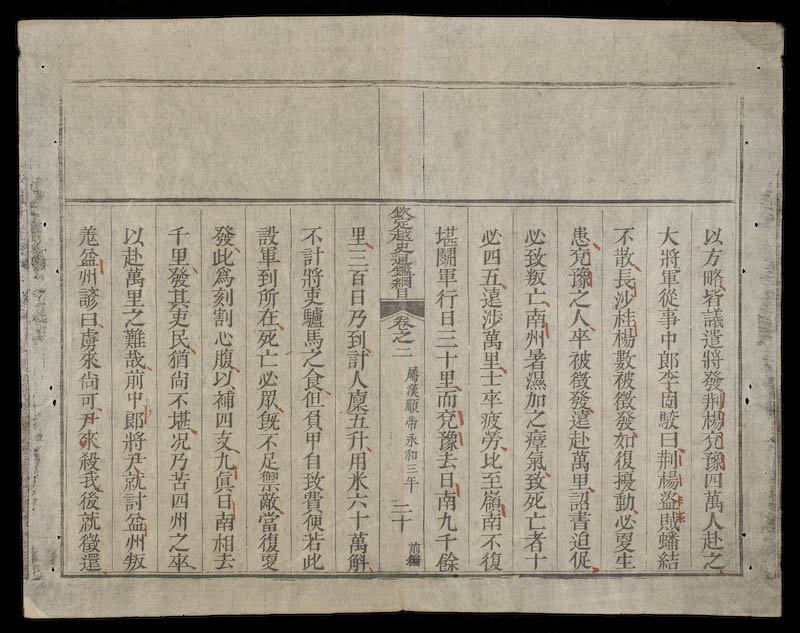 以方略皆議遣將發荆楊兗豫四萬人赴之
大將軍從事中郎李固駮曰荆楊盜賊蟠結
不散長沙桂楊數被徵發如復擾動必㪅生
患兗豫之人卒被徵發遠赴萬里詔書迫促
必致叛亡南州暑濕加之瘴氣致死亡者十
必四五遠涉萬里士卒疲勞比至嶺南不復
堪鬭軍行日三十里而兗豫去日南九千餘
欽定越史通鑑綱目
卷之二
屬漢順帝永和三年
二十
前編
里三百日乃到計人廩五升用米六十萬斛
不計將吏驢馬之食但負甲自致費便若此
設軍到所在死亡必眾既不足禦敵當復㪅
發此爲刻割心腹以補四支九眞日南相去
千里發其吏民猶尙不堪况乃苦四州之卒
以赴萬里之難哉前中郎將尹就討益州叛
羗益州諺曰虜來尙可尹來殺我後就徵還